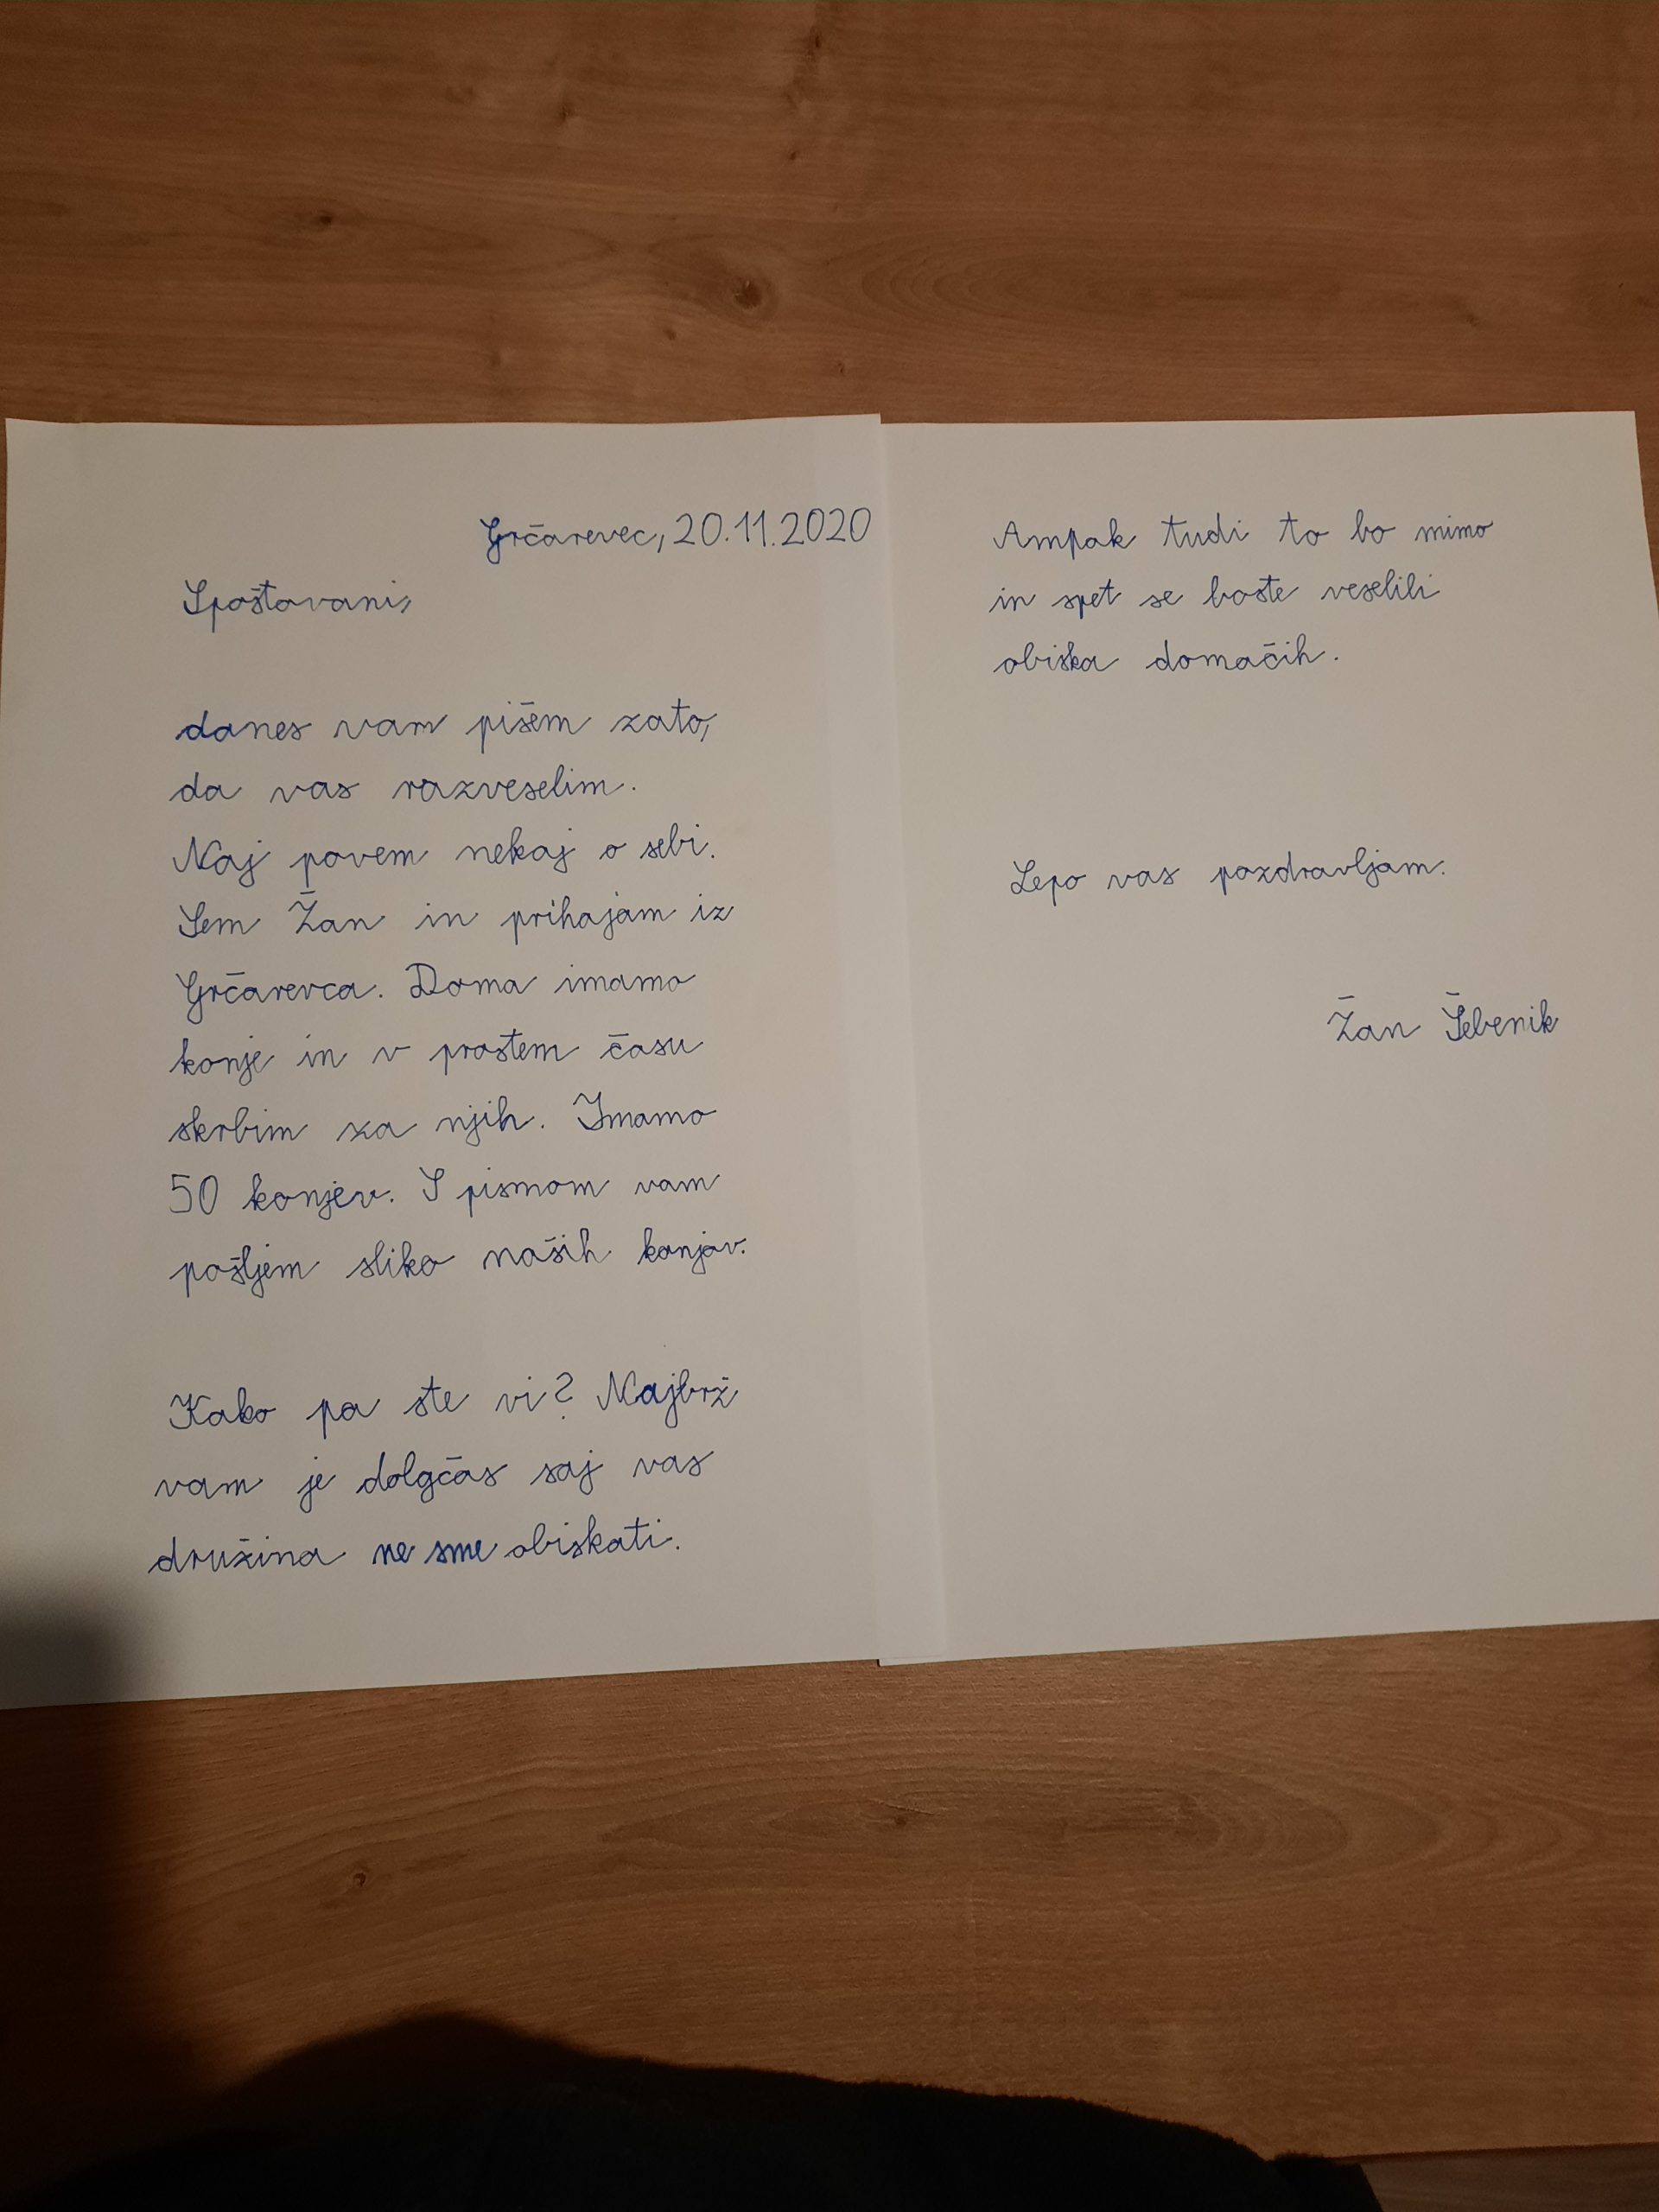 Grčarevec, 20.11.2020
Spoštovani,
danes vam pišem zato,
da vas razveselim.
Naj povem nekaj o sebi.
Sem Žan in prihajam iz
Grčarevca. Doma imamo
konje in v prostem času
skrbim za njih. Imamo
50 konjev. S pismom vam
pošljem sliko naših konjov.
Kako pa ste vi? Najbrž
vam je dolgčas saj vas
družina ne sme obiskati.
Ampak tudi to bo mimo
in spet se boste veselili
obiska domačih.
Lepo vas pozdravljam.
Žan Šebenik